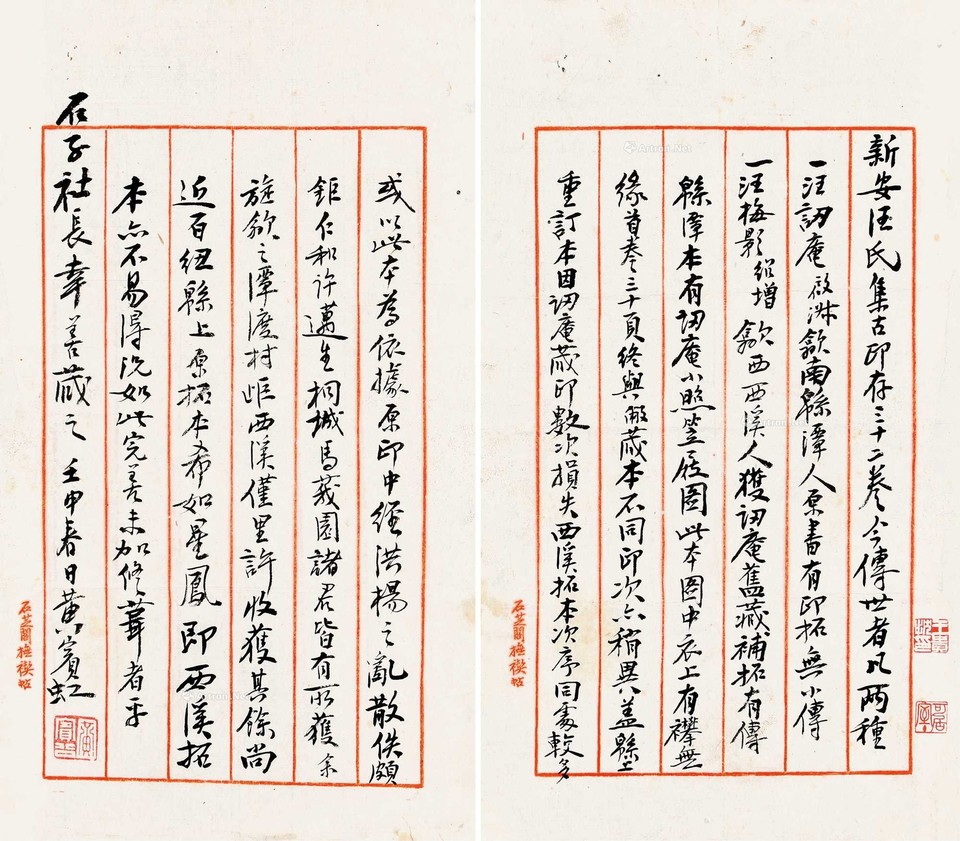 新安汪氏集古印存三十二卷今傳世者凡兩種
一汪訒庵啟淑歙南緜潭人原書有印拓無小傳
一汪梅影紹增歙西西溪人獲訒庵舊藏補拓有傳
緜潭本有訒庵小照笠屐圖此本圖中衣上有襻無
緣首卷三十頁終與敝藏本不同印次亦稍異蓋緜上
重訂本因訒庵藏印數次損失西溪拓本次序同處較多
或以此本為依據原印中經洪楊之亂散佚頗
鉅仁和許邁生桐城馬莪園諸君皆有所獲余
旋歙之潭渡村岠西溪僅里許收獲其餘尚
近百鈕緜上原拓本希如星鳳即西溪拓
本亦不易得況如此完善未加修葺者乎
石子社長幸善藏之 壬申春日黃賓虹
Artron.Net